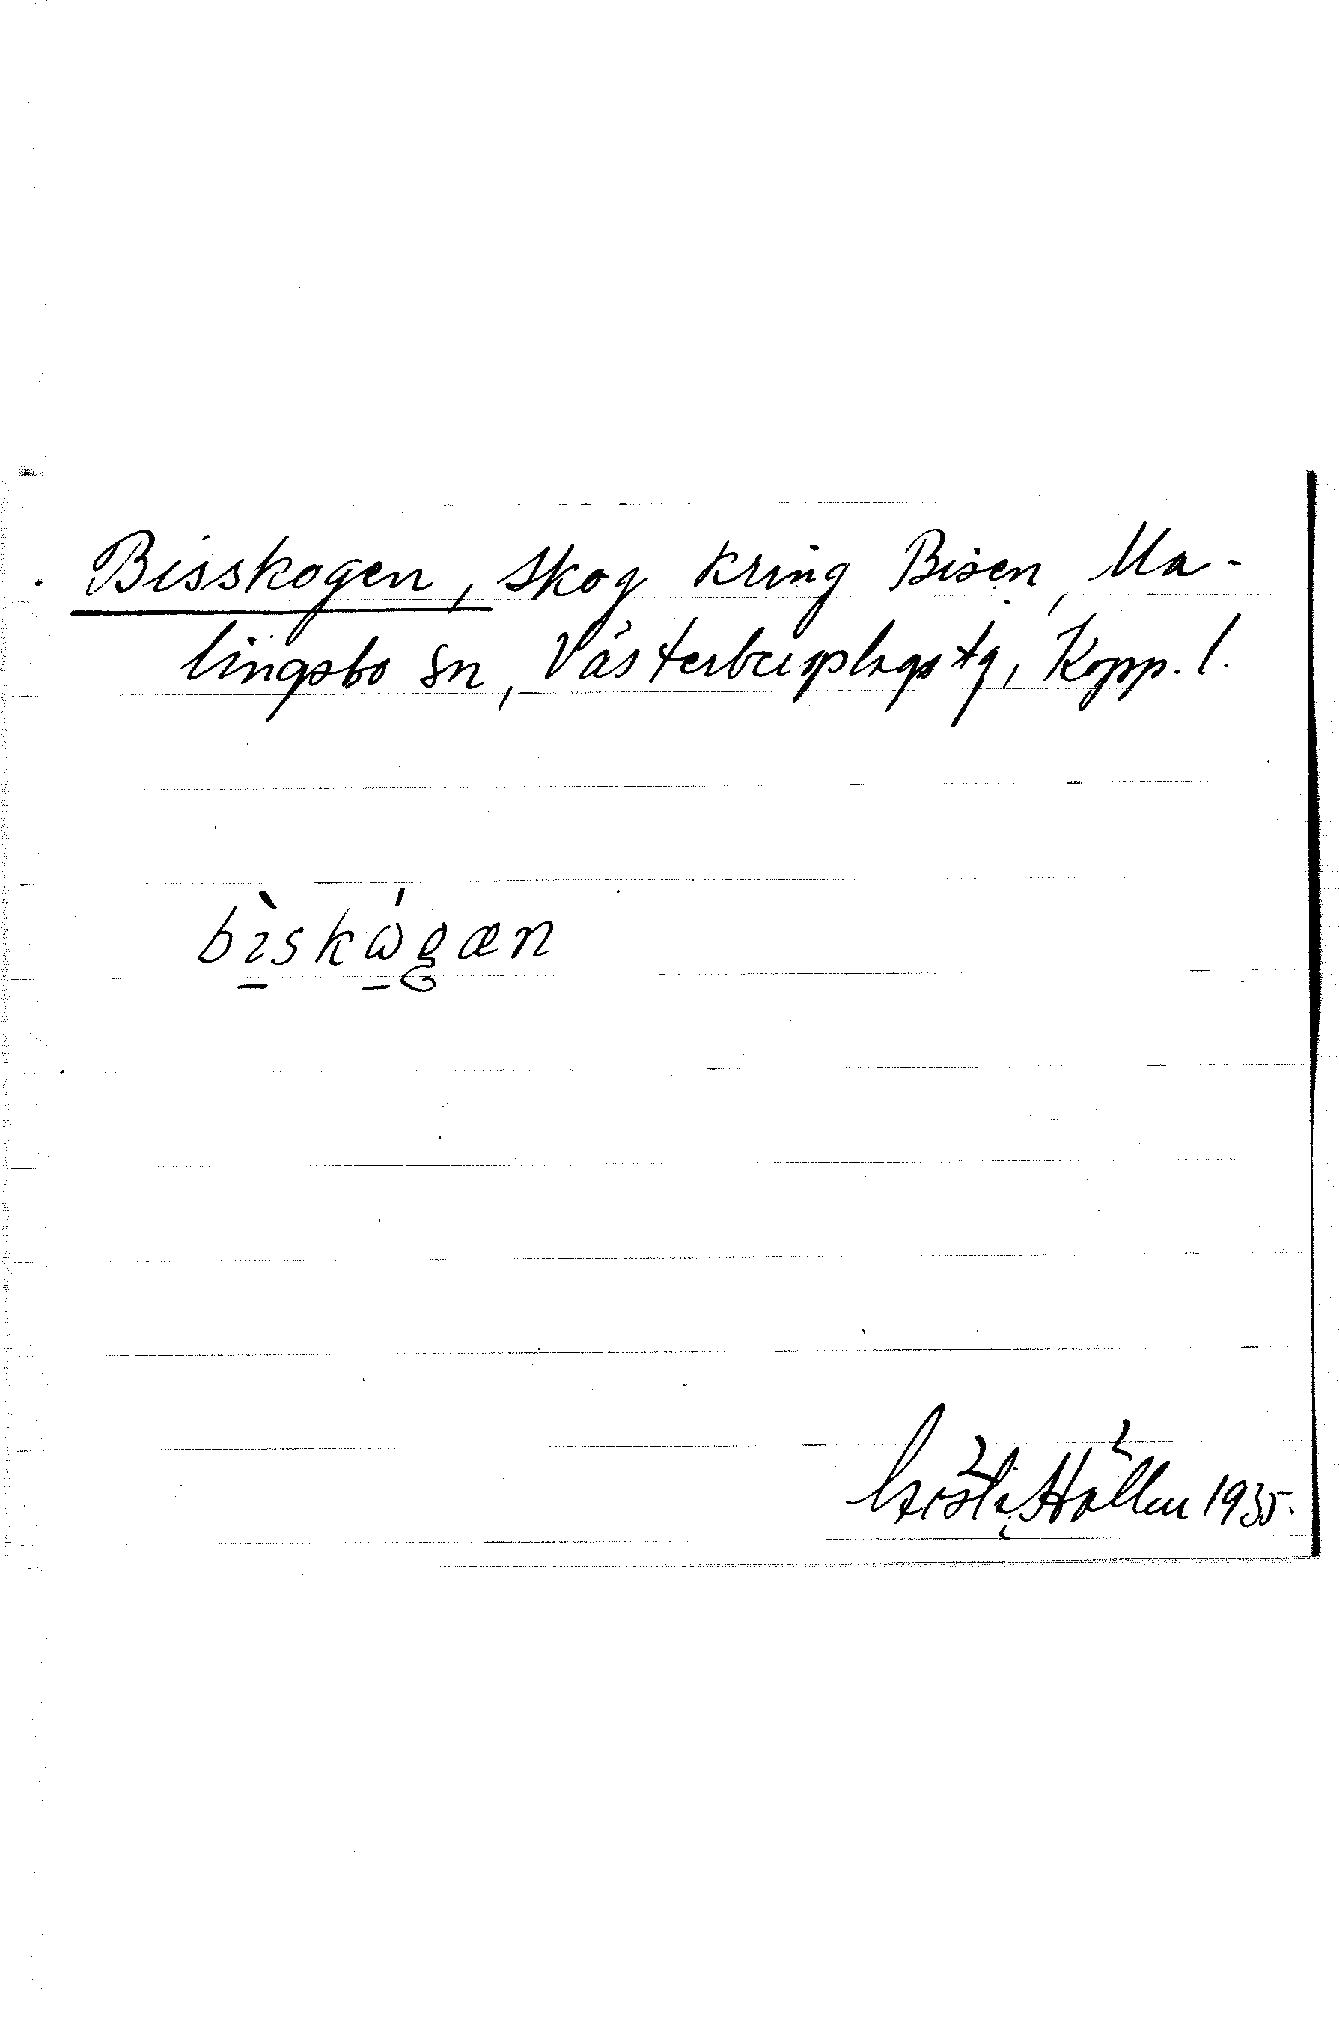 Bisskogen, skog kring Bisen, Ma-
lingsbo sn, Västerbergslags tg, Kopp. l.
bìskώgæn
Gösta Hallen 1935.